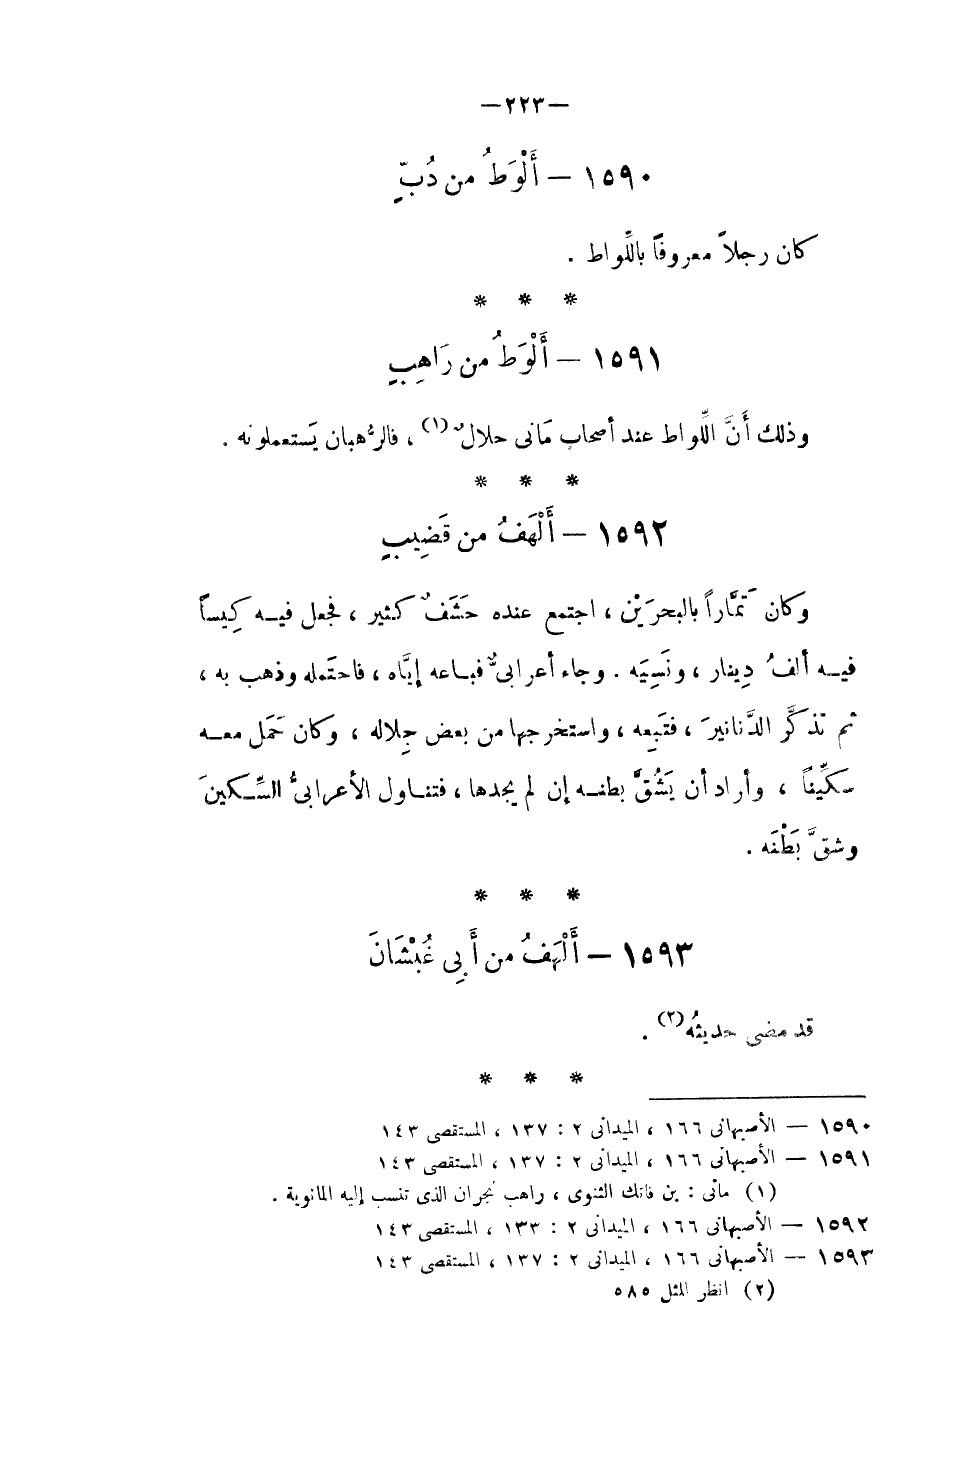 —٢٢٣—
١٥٩٠ — أَلْوَطُ من دُبٍّ
كان رجلاً معروفاً باللِّواط .
* * *
١٥٩١ — أَلْوَطُ من رَاهِبٍ
وذلك أَنَّ اللِّواط عند أصحاب مَانى حلالٌ (١) ، فالرُّهبان يَستعملونه .
* * *
١٥٩٢ — أَلْهَفُ من قَضِيبٍ
وكان تَمَّاراً بالبحرَيْن ، اجتمع عنده حَشَفٌ كثير ، فجعل فيه كِيساً
فيه ألفُ دِينار ، ونَسِيَه . وجاء أعرابىٌّ فباعه إيَّاه ، فاحتَمله وذهب به ،
ثم تذكَّر الدَّنانيرَ ، فتَبِعه ، واستخرجها من بعض جِلاله ، وكان حَمَل معه
سكِّيناً ، وأراد أن يَشُقَّ بطنه إن لم يجدها ، فتناول الأعرابىُّ السِّكينَ
وشقَّ بَطْنَه .
* * *
١٥٩٣ — أَلْهَفُ من أَبِى غُبْشَانَ
قد مضى حديثُه (٢) .
* * *
١٥٩٠ — الأصبهانى ١٦٦ ، الميدانى ٢ : ١٣٧ ، المستقصى ١٤٣
١٥٩١ — الأصبهانى ١٦٦ ، الميدانى ٢ : ١٣٧ ، المستقصى ١٤٣
(١) مانى : بن فاتك الثنوى ، راهب نجران الذى تنسب إليه المانوية .
١٥٩٢ — الأصبهانى ١٦٦ ، الميدانى ٢ : ١٣٣ ، المستقصى ١٤٣
١٥٩٣ — الأصبهانى ١٦٦ ، الميدانى ٢ : ١٣٧ ، المستقصى ١٤٣
(٢) انظر المثل ٥٨٥